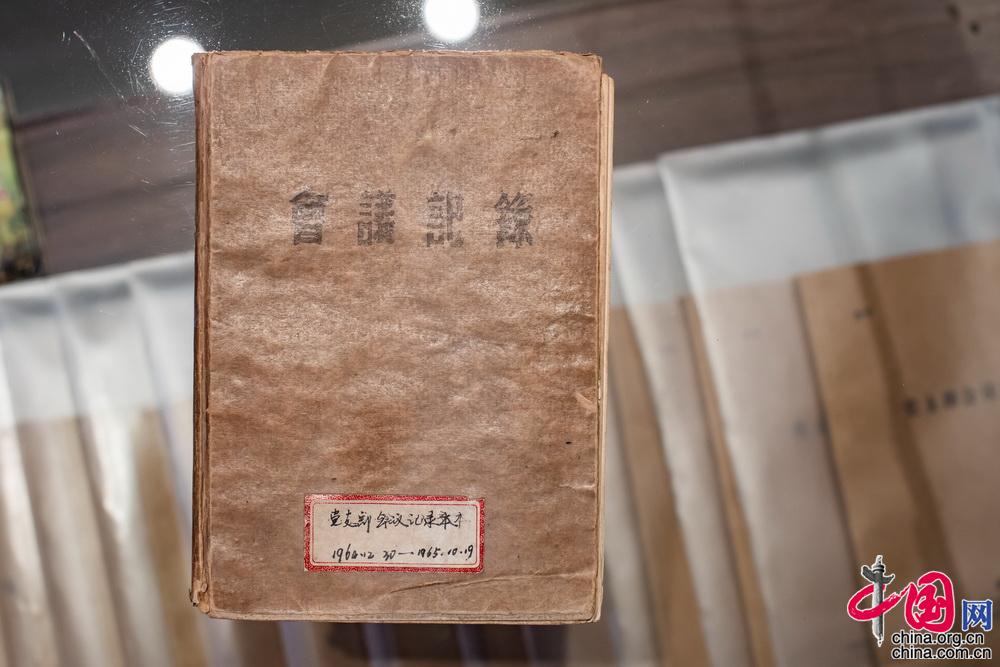 會議記錄
党支部会议记录本
1964.12.30—1965.10.19
中国网
china.org.cn
china.com.cn